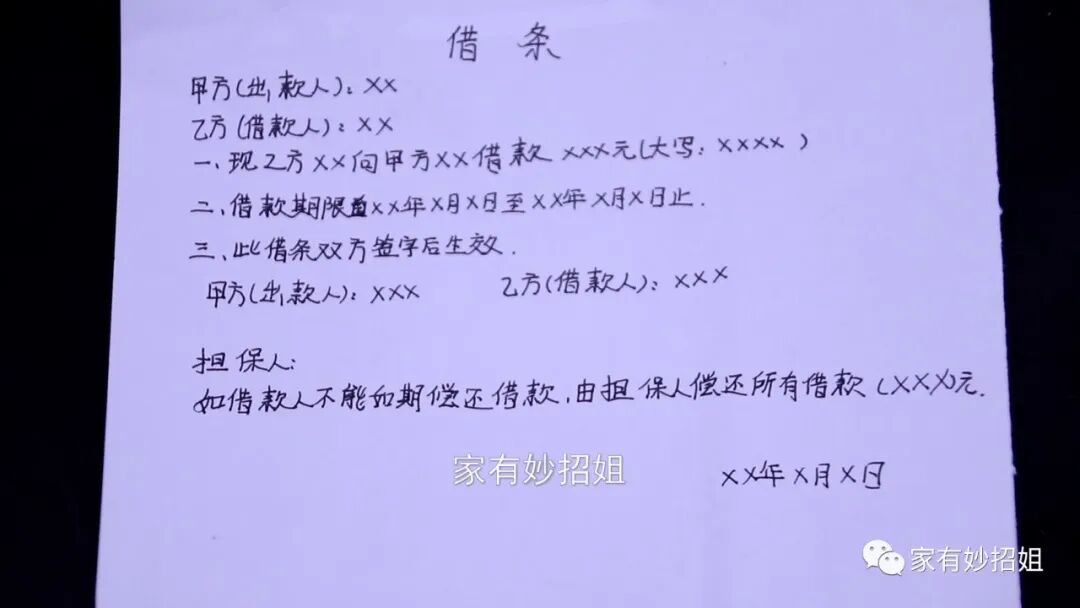 借 条
甲方(出款人)：XX
乙方(借款人)：XX
一、现乙方XX向甲方XX借款XXX元(大写：XXXX)
二、借款期限XX年X月X日至XX年X月X日止.
三、此借条双方签字后生效.
甲方(出款人)：XXX 乙方(借款人)：XXX
担保人：
如借款人不能如期偿还借款,由担保人偿还所有借款(XXX)元.
家有妙招姐
XX年X月X日
家有妙招姐